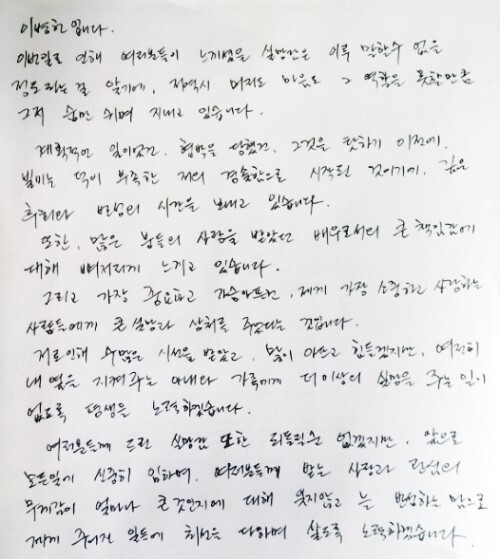 이병헌입니다.
이번일로 인해 여러분들이 느끼셨을 실망감은 이루 말할수 없을
정도라는걸 알기에, 저역시 머리도 마음도 그 역할을 못할만큼
그저 숨만 쉬며 지내고 있습니다.
계획적인 일이었건, 협박을 당했건, 그것을 탓하기 이전에.
빌미는 덕이 부족한 저의 경솔함으로 시작된 것이기에, 깊은
후회와 반성의 시간을 보내고 있습니다.
또한, 많은 분들의 사랑을 받았던 배우로서의 큰 책임감에
대해 뼈저리게 느끼고 있습니다.
그리고 가장 중요하고 가슴아프건, 제게 가장 소중하고 사랑하는
사람들에게 큰 실망과 상처를 주었다는 겁니다.
저로인해 수많은 시선을 받았고, 많이 아프고 힘들겠지만, 여전히
내 옆을 지켜주는 아내와 가족에게 더이상의 실망을 주는 일이
없도록 평생을 노력하겠습니다.
여러분들께 드린 실망감 또한 되돌릴순 없겠지만, 앞으로
모든일에 신중히 임하며, 여러분들께 받은 사랑과 관심의
무게감이 얼마나 큰 것인지에 대해 잊지않고 늘 반성하는 맘으로
제게 주어진 일들에 최선을 다하며 살도록 노력하겠습니다.